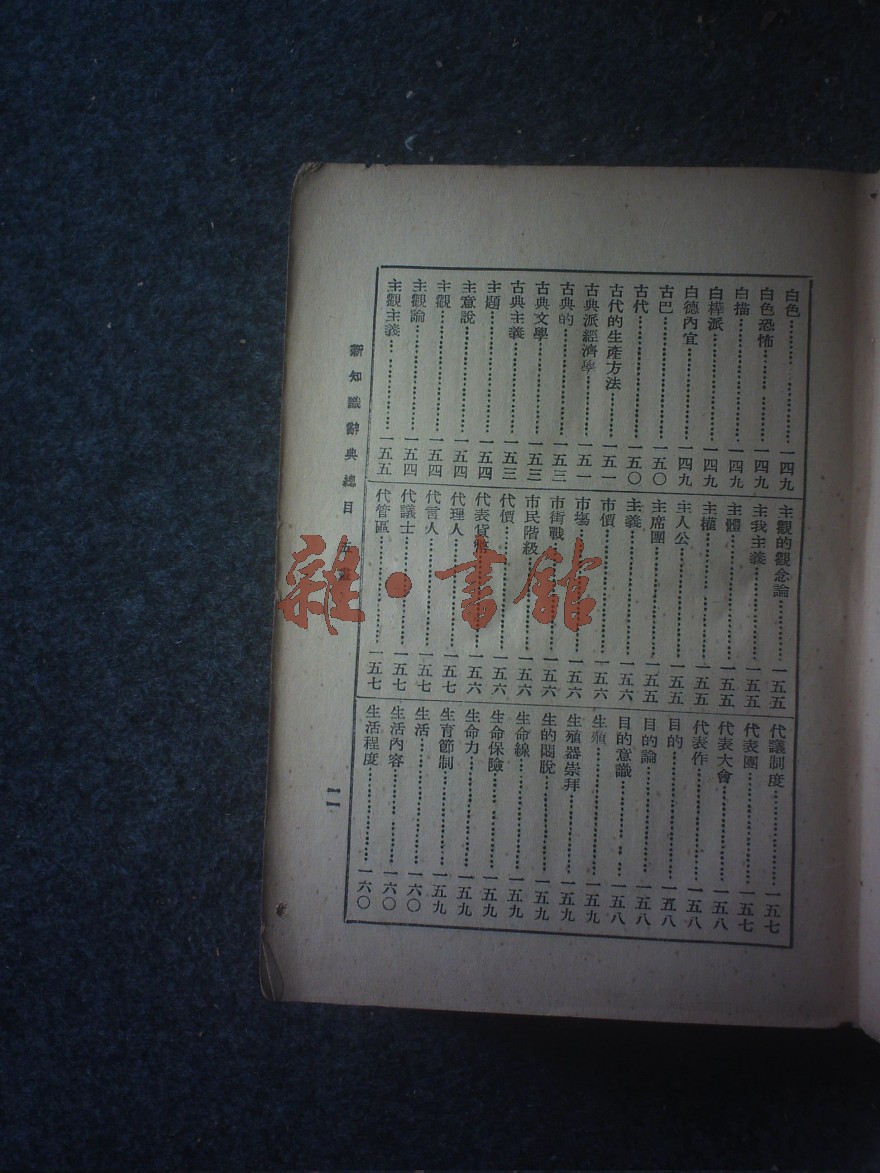 白色……一四九
白色恐怖……一四九
白描……一四九
白樺派……一四九
白德內宜……一四九
古巴……一五〇
古代……一五〇
古代的生產方法……一五一
古典派經濟學……一五一
古典的……一五三
古典文學……一五三
古典主義……一五三
主題……一五四
主意說……一五四
主觀……一五四
主觀論……一五四
主觀主義……一五五
主觀的觀念論……一五五
主我主義……一五五
主體……一五五
主權……一五五
主人公……一五五
主席團……一五五
主義……一五六
市價……一五六
市場……一五六
市街戰……一五六
市民階級……一五六
代價……一五六
代表貨幣……一五六
代理人……一五七
代言人……一五七
代議士……一五七
代管區……一五七
代議制度……一五七
代表團……一五七
代表大會……一五八
代表作……一五八
目的……一五八
目的論……一五八
目的意識……一五八
生殖……一五九
生殖器崇拜……一五九
生的悶脫……一五九
生命線……一五九
生命保險……一五九
生命力……一五九
生育節制……一五九
生活……一六〇
生活內容……一六〇
生活程度……一六〇
新知識辭典總目 五畫
一一
雜·書館